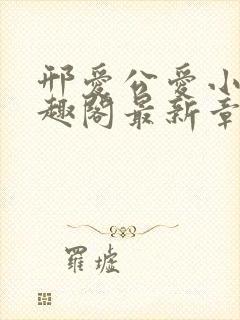 邢爱公爱小
趣阁最新章
羅墟